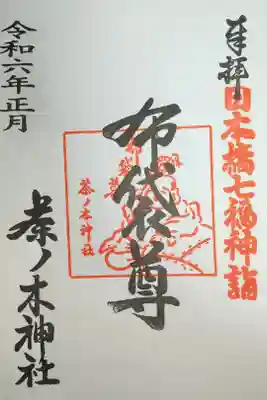 奉拝
日本橋七福神詣
布袋尊
布袋尊
茶ノ木神社
令和六年正月
茶ノ木神社